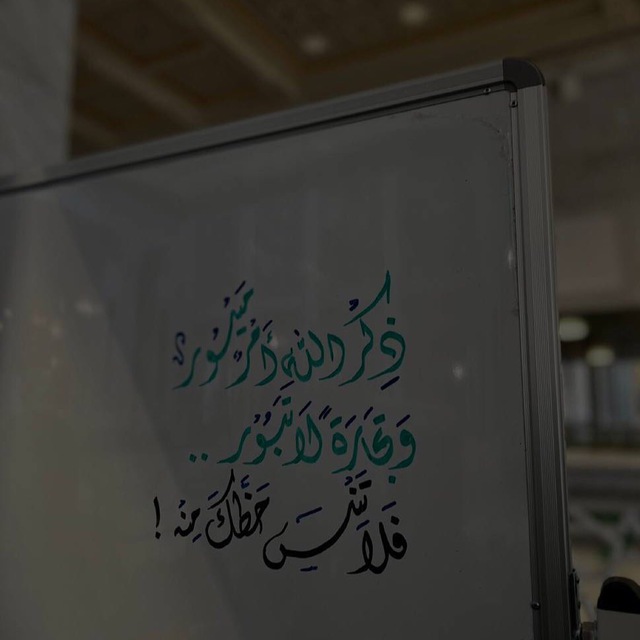 ذِكْرُ اللهِ أَمْرٌ مَيْسُورٌ
وَتِجَارَةً لَا تَبُوْر ..
فَلَا تَنْسَ حَظَّكَ مِنْهُ !